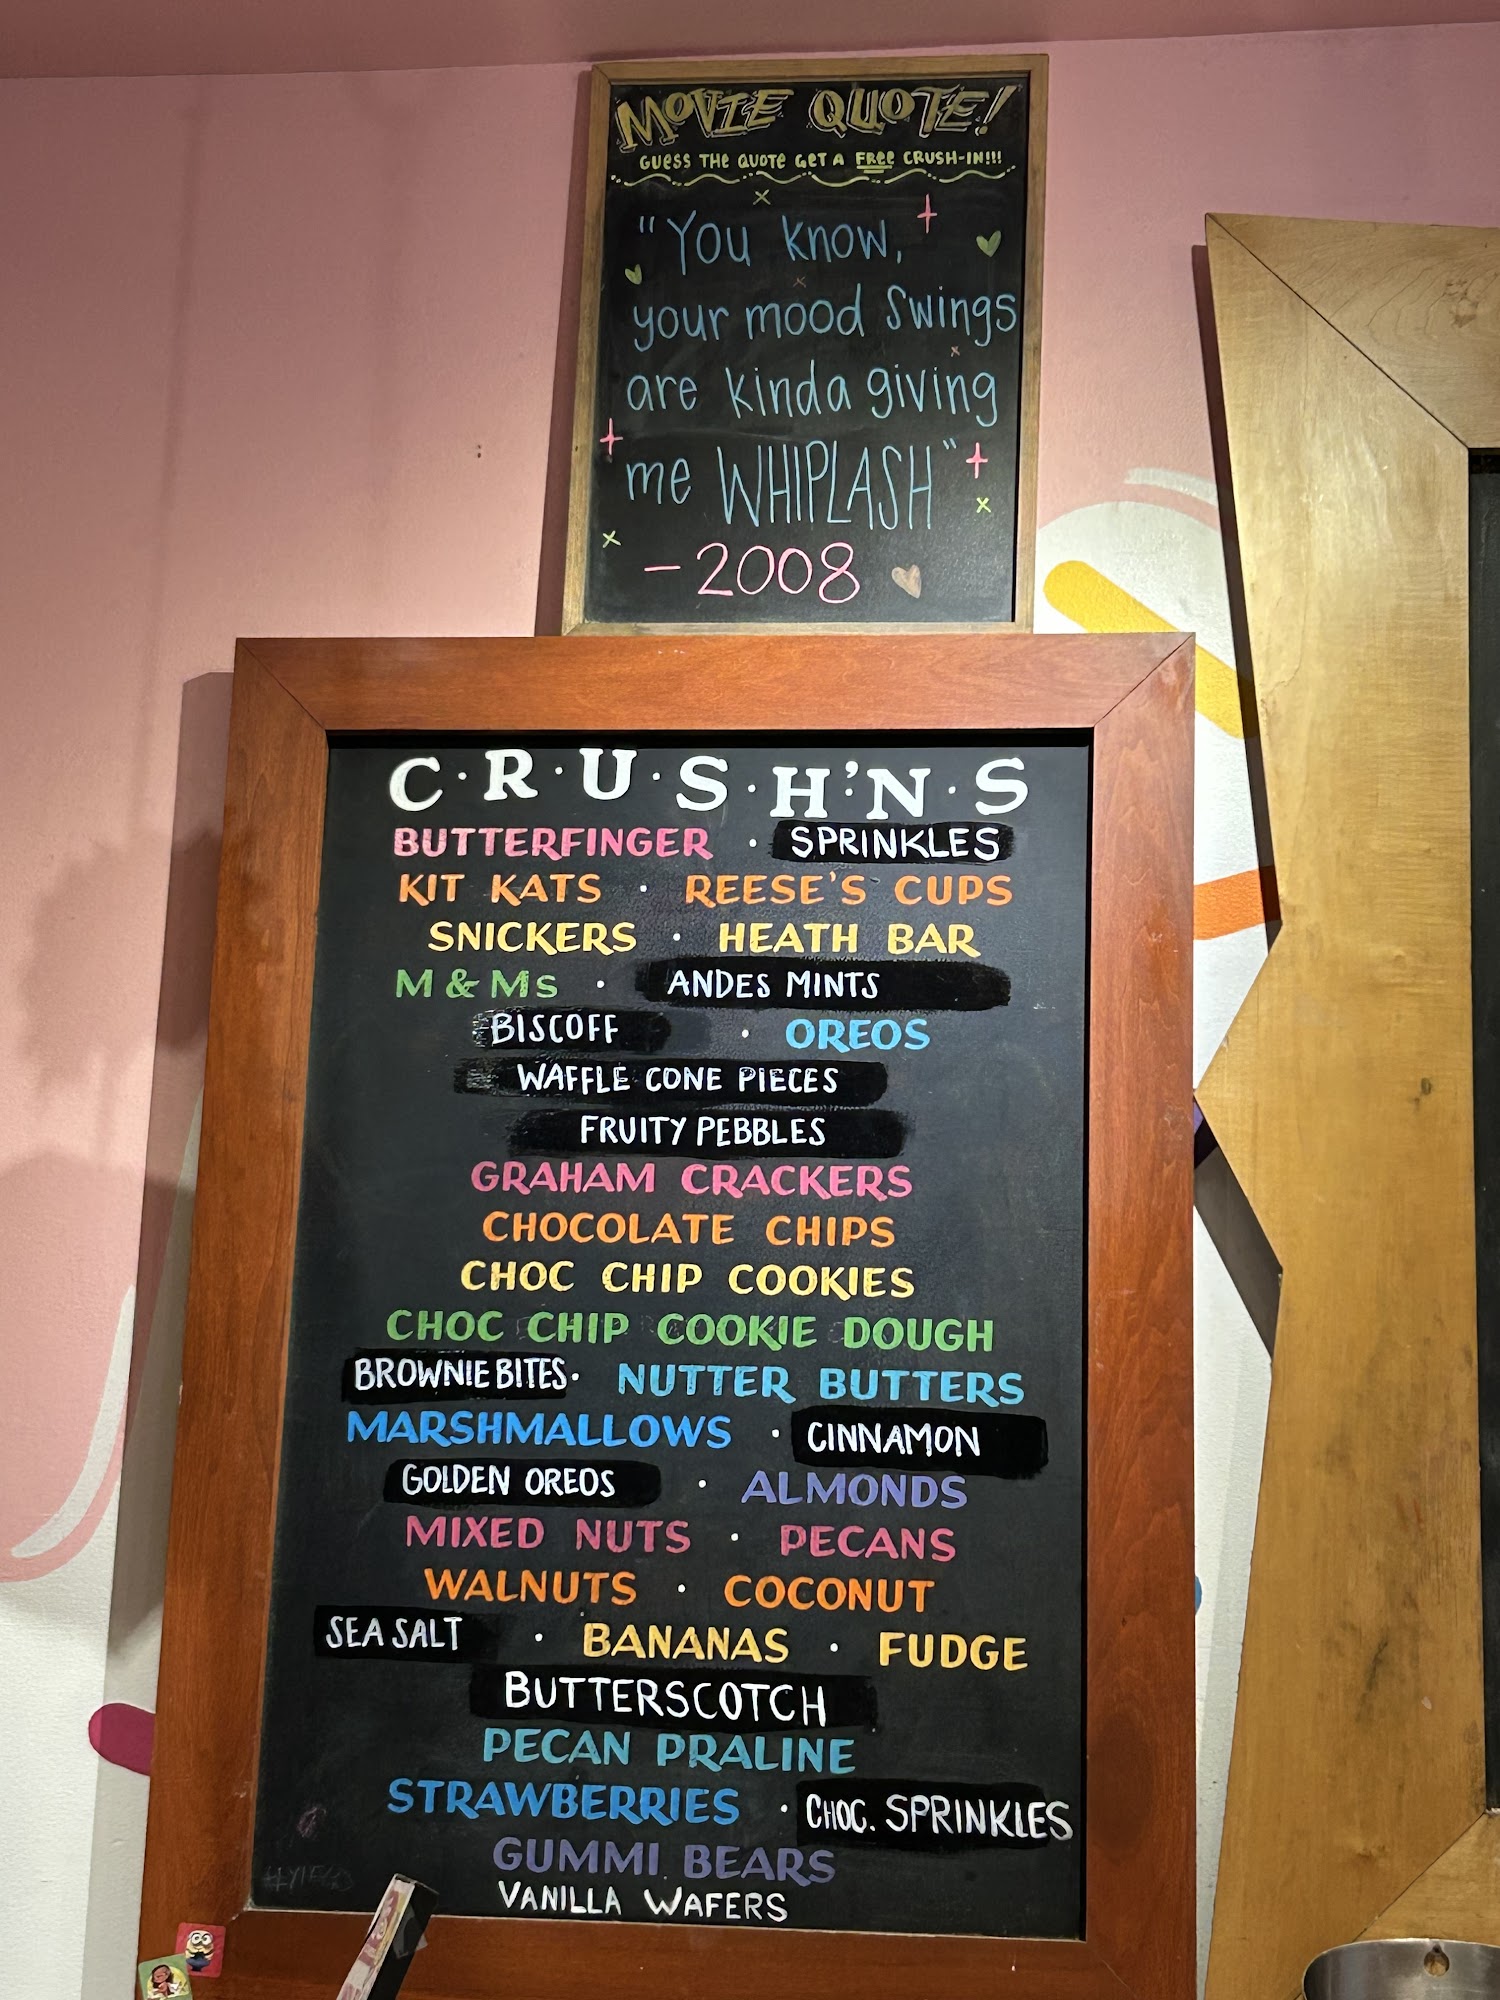 MOVIE QUOTE!
GUESS THE QUOTE GET A FREE CRUSH-IN!!!
"You know,
your mood swings
are kinda giving
me WHIPLASH"
- 2008
C·R·U·S·H'·N·S
BUTTERFINGER · SPRINKLES
KIT KATS · REESE'S CUPS
SNICKERS · HEATH BAR
M & Ms · ANDES MINTS
BISCOFF · OREOS
WAFFLE CONE PIECES
FRUITY PEBBLES
GRAHAM CRACKERS
CHOCOLATE CHIPS
CHOC CHIP COOKIES
CHOC CHIP COOKIE DOUGH
BROWNIE BITES · NUTTER BUTTERS
MARSHMALLOWS · CINNAMON
GOLDEN OREOS · ALMONDS
MIXED NUTS · PECANS
WALNUTS · COCONUT
SEA SALT · BANANAS · FUDGE
BUTTERSCOTCH
PECAN PRALINE
STRAWBERRIES · CHOC. SPRINKLES
GUMMI BEARS
VANILLA WAFERS